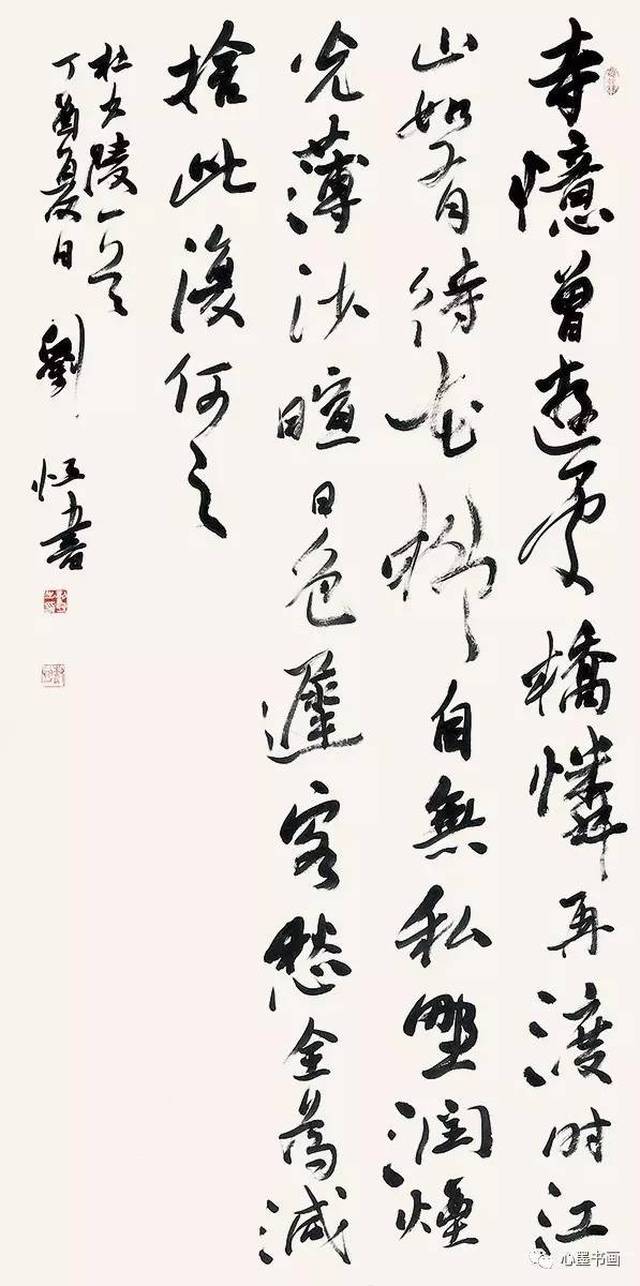 寺憶曾遊處橋憐再渡时江
山如有待花柳自無私野润煙
光薄沙暄日色遲客愁全為減
捨此復何之
杜少陵一首
丁酉夏日 劉恒書
心墨书画